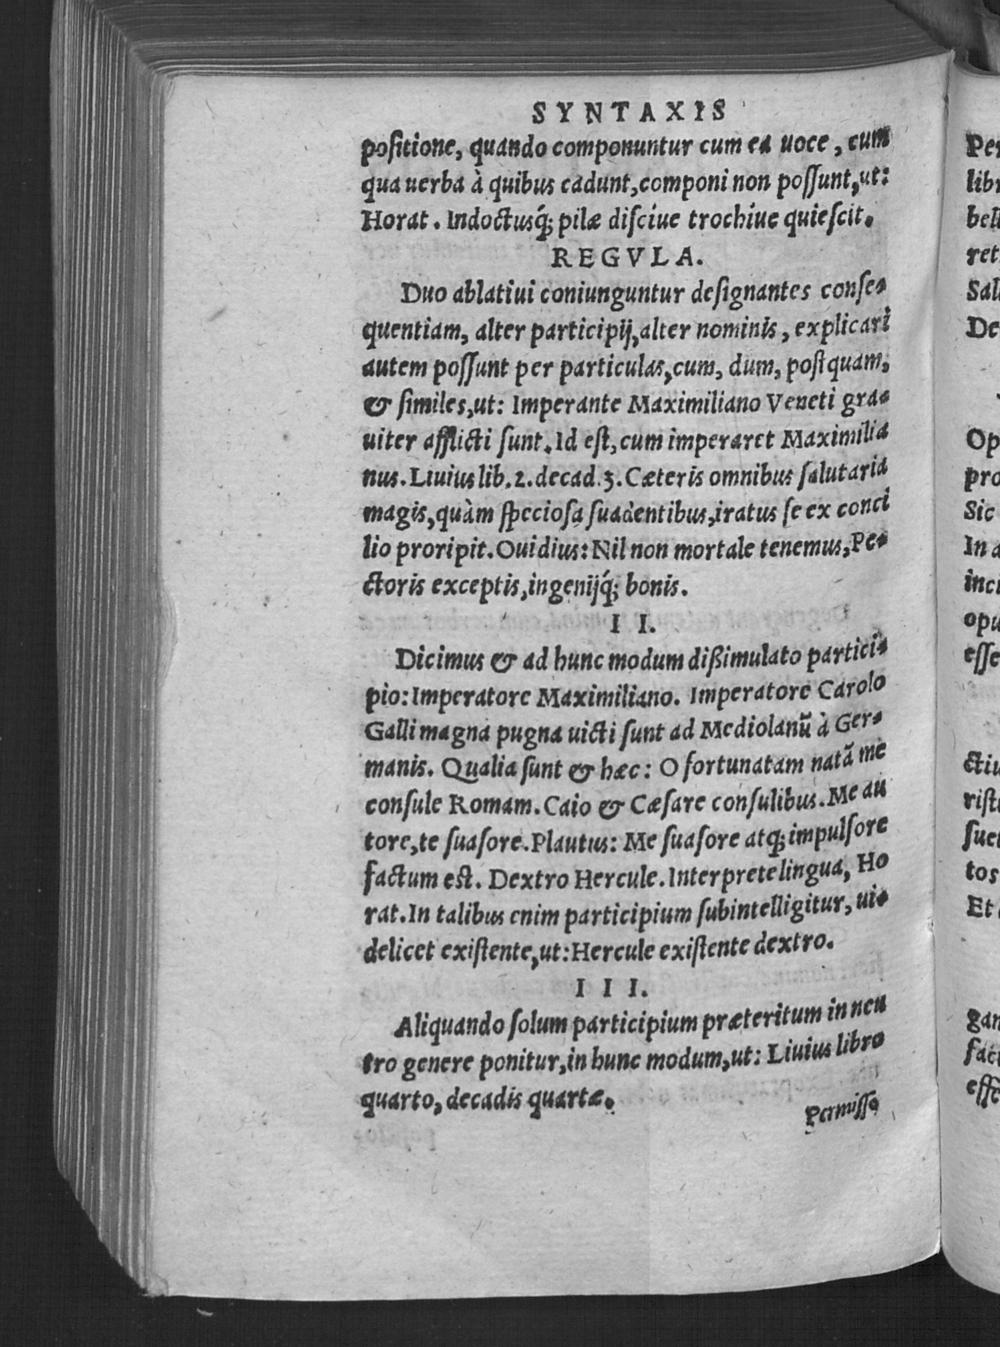 SYNTAXIS
poſitione, quando componuntur cum ea uoce, cum
qua uerba à quibus cadunt, componi non poſſunt, ut:
Horat. Indoctusq́; pilæ diſciue trochiue quieſcit.
REGVLA.
Duo ablatiui coniunguntur deſignantes conſe-
quentiam, alter participij, alter nominis, explicari
autem poſſunt per particulas, cum, dum, poſtquam,
& ſimiles, ut: Imperante Maximiliano Veneti gra-
uiter afflicti ſunt. Id eſt, cum imperaret Maximilia
nus. Liuius lib. 2. decad. 3. Cæteris omnibus ſalutaria
magis, quàm ſpecioſa ſuadentibus, iratus ſe ex conci
lio proripit. Ouidius: Nil non mortale tenemus, Pe-
ctoris exceptis, ingenijq́; bonis.
II.
Dicimus & ad hunc modum dißimulato partici-
pio: Imperatore Maximiliano. Imperatore Carolo
Galli magna pugna uicti ſunt ad Mediolanũ à Ger-
manis. Qualia ſunt & hæc: O fortunatam natã me
conſule Romam. Caio & Cæſare conſulibus. Me au
tore, te ſuaſore. Plautus: Me ſuaſore atq; impulſore
factum eſt. Dextro Hercule. Interprete lingua, Ho
rat. In talibus enim participium ſubintelligitur, ui-
delicet exiſtente, ut: Hercule exiſtente dextro.
III.
Aliquando ſolum participium præteritum in neu
tro genere ponitur, in hunc modum, ut: Liuius libro
quarto, decadis quartæ.
Permiſſo
Per
libr
bell
ret
Sal
De
Op
pro
Sic
In a
inci
opu
eſſe
ctiu
riſt
ſuer
tos
Et
gan
faci
eſſe